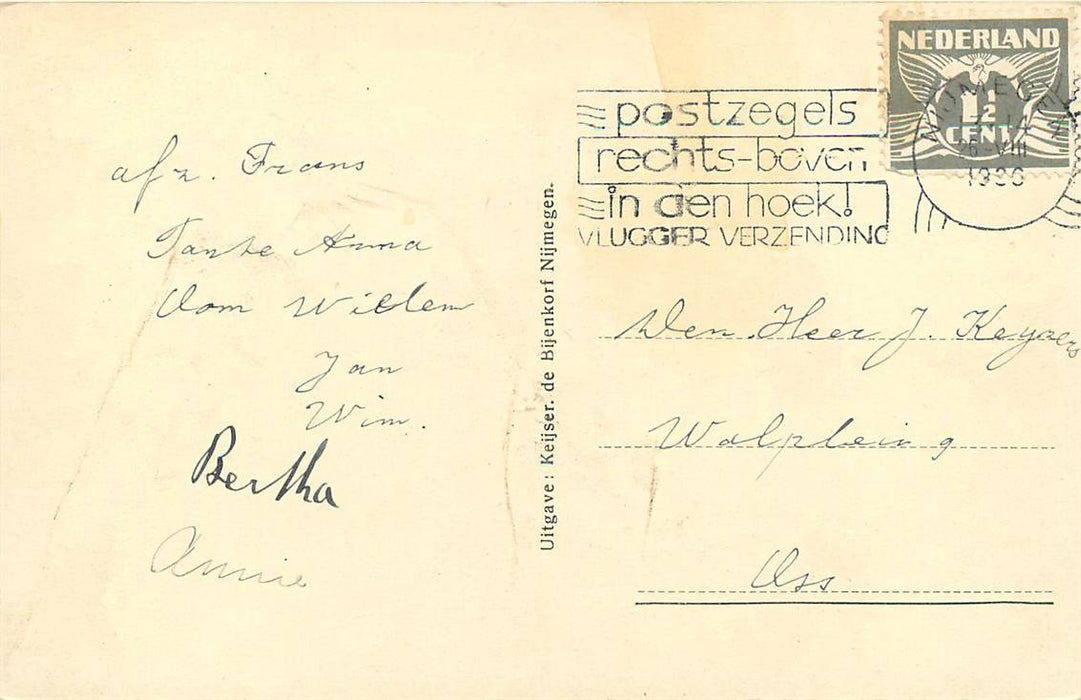 afz. Frans
Tante Anna
Oom Willem
Jan
Wim.
Bertha
Annie
Uitgave: Keijser. de Bijenkorf Nijmegen.
postzegels
rechts-boven
in den hoek!
VLUGGER VERZENDING
NEDERLAND
1½
CENT
NIJMEGEN
VIII
Den Heer J. Keyzers
Walplein 9
Oss